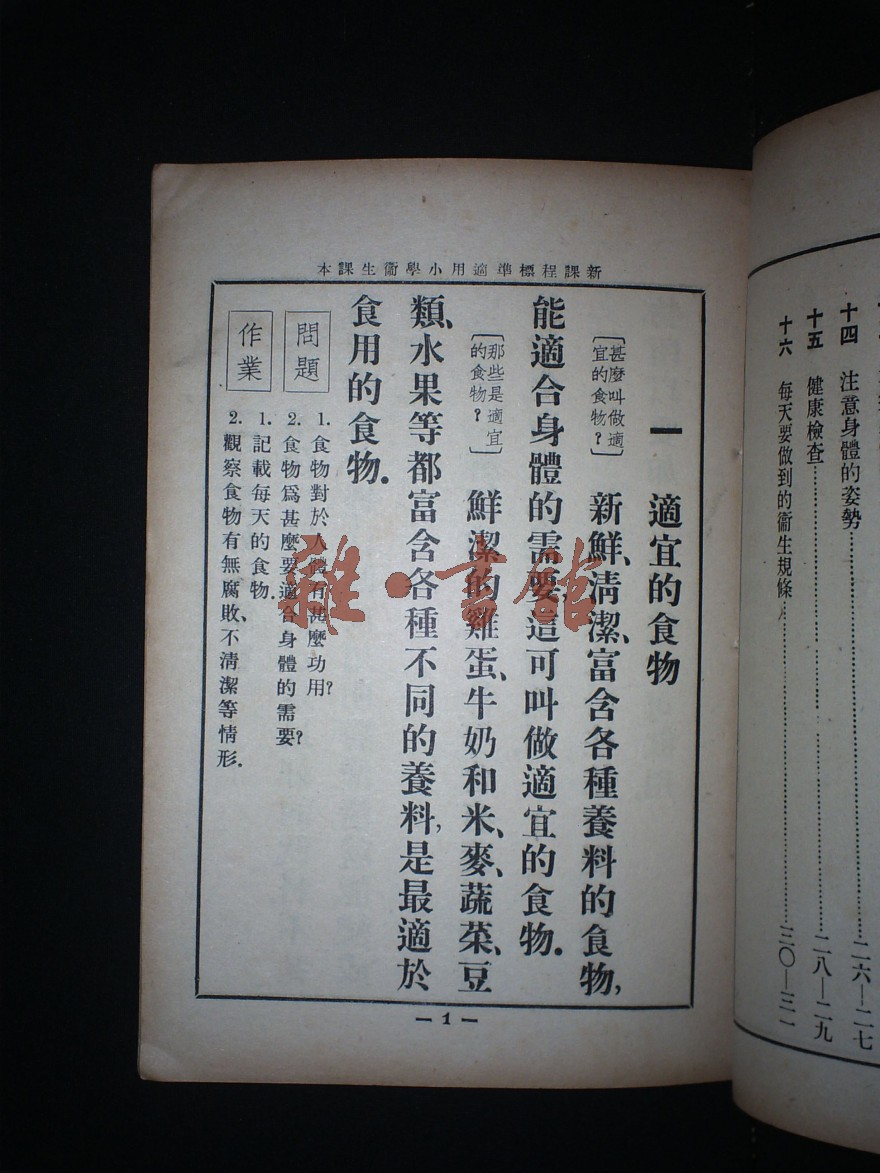 十四 注意身體的姿勢………二六—二七
十五 健康檢查………二八—二九
十六 每天要做到的衞生規條………三〇—三一
新課程標準適用小學衞生課本
一 適宜的食物
〔甚麼叫做適
宜的食物?〕
新鮮、清潔、富含各種養料的食物,
能適合身體的需要,這可叫做適宜的食物.
〔那些是適宜
的食物?〕
鮮潔的雞蛋、牛奶和米、麥、蔬菜、豆
類、水果等都富含各種不同的養料,是最適於
食用的食物.
問題
1. 食物對於人體有甚麼功用?
2. 食物爲甚麼要適合身體的需要?
作業
1. 記載每天的食物.
2. 觀察食物有無腐敗、不清潔等情形.
— 1 —
雜·書館